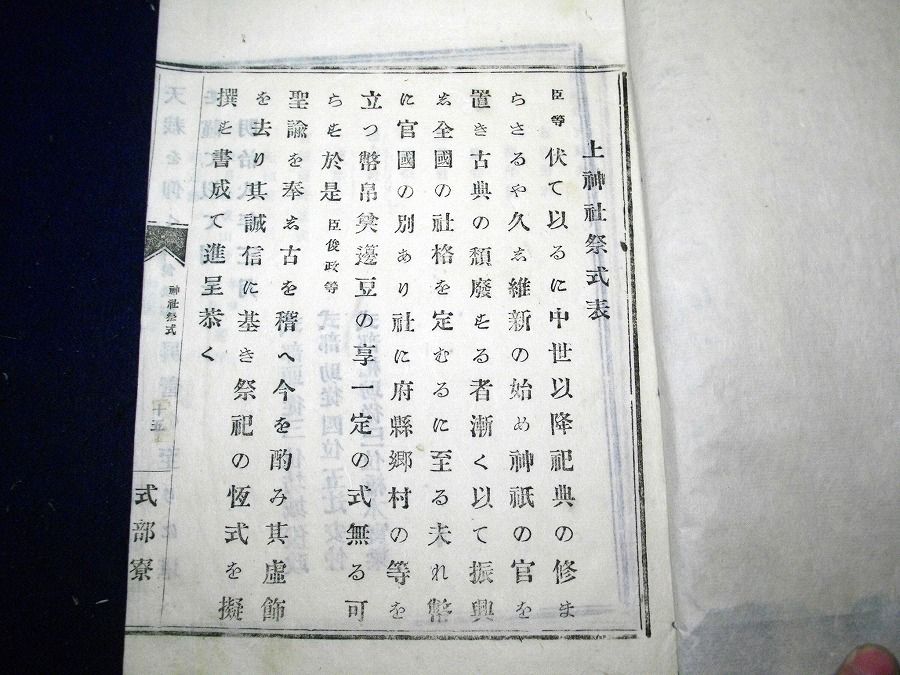 上神社祭式表
臣等伏て以るに中世以降祀典の修ま
らさるや久し維新の始め神祇の官を
置き古典の頽廢せる者漸く以て振興
し全國の社格を定むるに至る夫れ幣
に官國の別あり社に府縣郷村の等を
立つ幣帛奠籩豆の享一定の式無る可
らす於是臣俊政等
聖諭を奉し古を稽へ今を酌み其虚飾
を去り其誠信に基き祭祀の恆式を擬
撰す書成て進呈恭く
神社祭式
式部寮